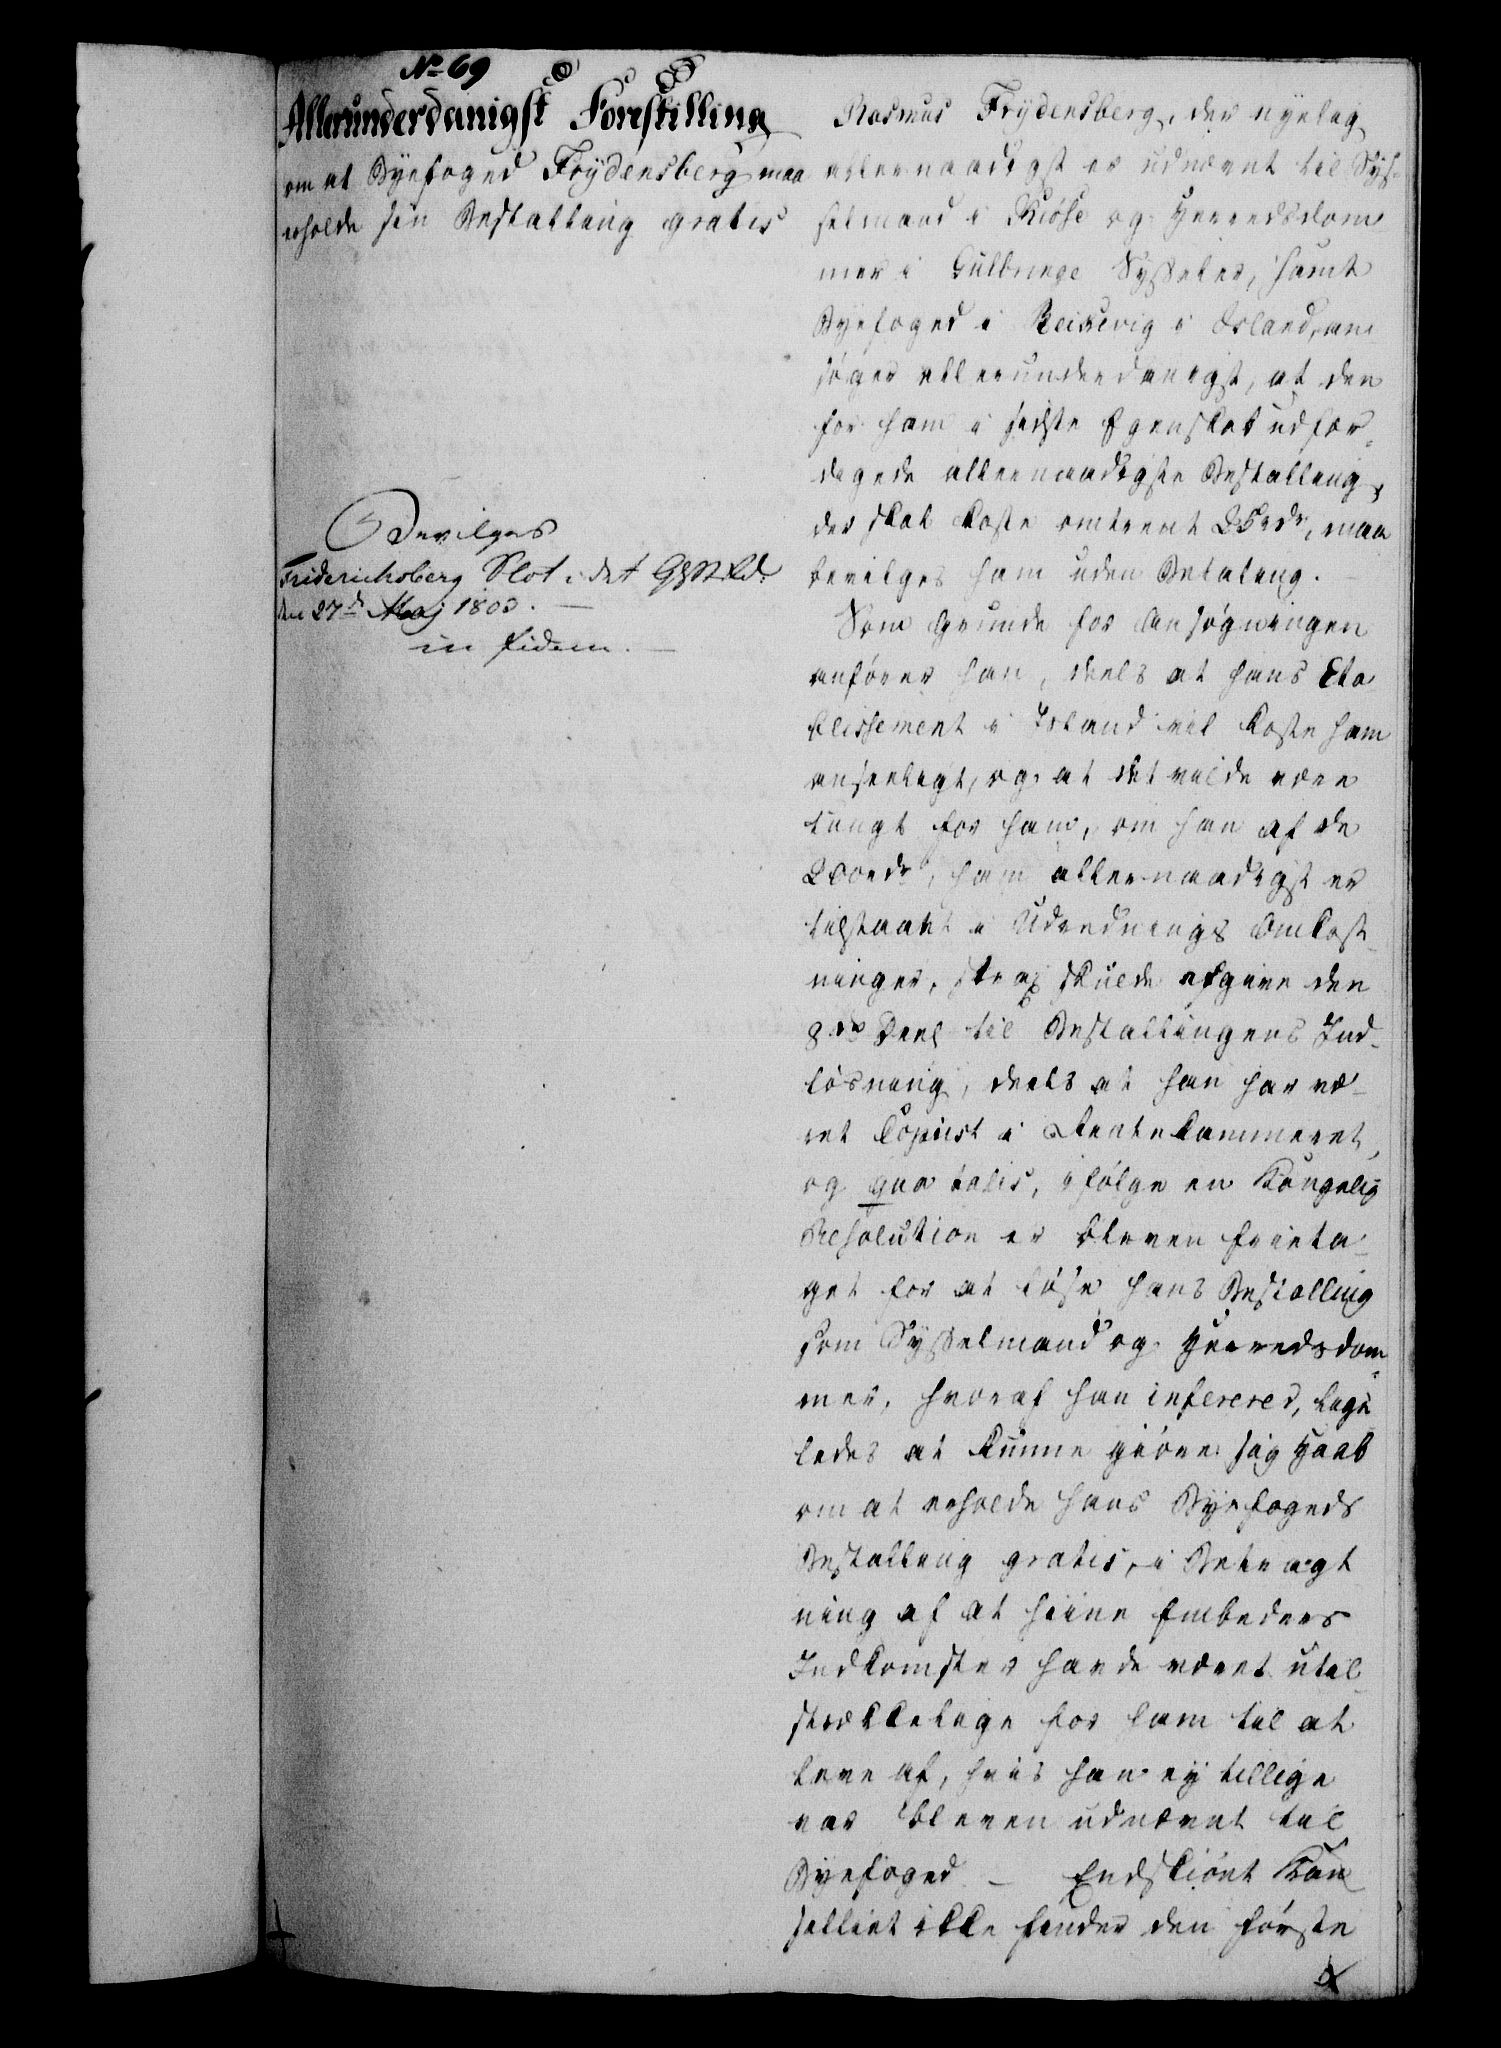 No 69
Allerunderdanigst Forestilling
om at Byefoged Frydensberg maa
erholde sin Bestalling gratis
Bevilges
Friderichsberg Slot i det
den 27de Maj 1803.
in fidem.
Rasmus Frydensberg, der nyelag
allernaadigst er udnævnt til Sys-
selmand i Kiose og Herredsdom
mer i Gulbringe Sysseler, samt
Byefoged i Reikevig i Island, an
søger allerunderdanigst, at den
for ham i sidste Egenskab udfær-
digede allernaadigste Bestalling,
der skal koste omtrent Rdr, maa
bevilges ham uden Betaling. —
Som Grunde for Ansøgningen
anfører han, deels at hans Eta
blissement i Island vil koste ham
anseeligt, og at det vilde være
tungt for ham, om han af de
200rdr, ham allernaadigst er
tilstaaet i Udrednings Omkost-
ninger, strax skulde afgive den
8de Deel til Bestallingens Ind-
løsning, deels at han har væ-
ret Copiist i Rentekammeret,
og qua talis, ifølge en Kongelig
Resolution er bleven frieta-
get for at løse hans Bestalling
som Sysselmand og Herredsdom-
mer, hvoraf han infererer, lige
ledes at kunne giøre sig Haab
om at erholde hans Byefogeds
Bestalling gratis, i Betragt
ning af at hiine Embeders
Indkomster havde været util-
strækkelige for ham til at
leve af, hvis han ey tillige
var bleven udnævnt til
Byefoged — Endskiønt Kan
celliet ikke finder den første